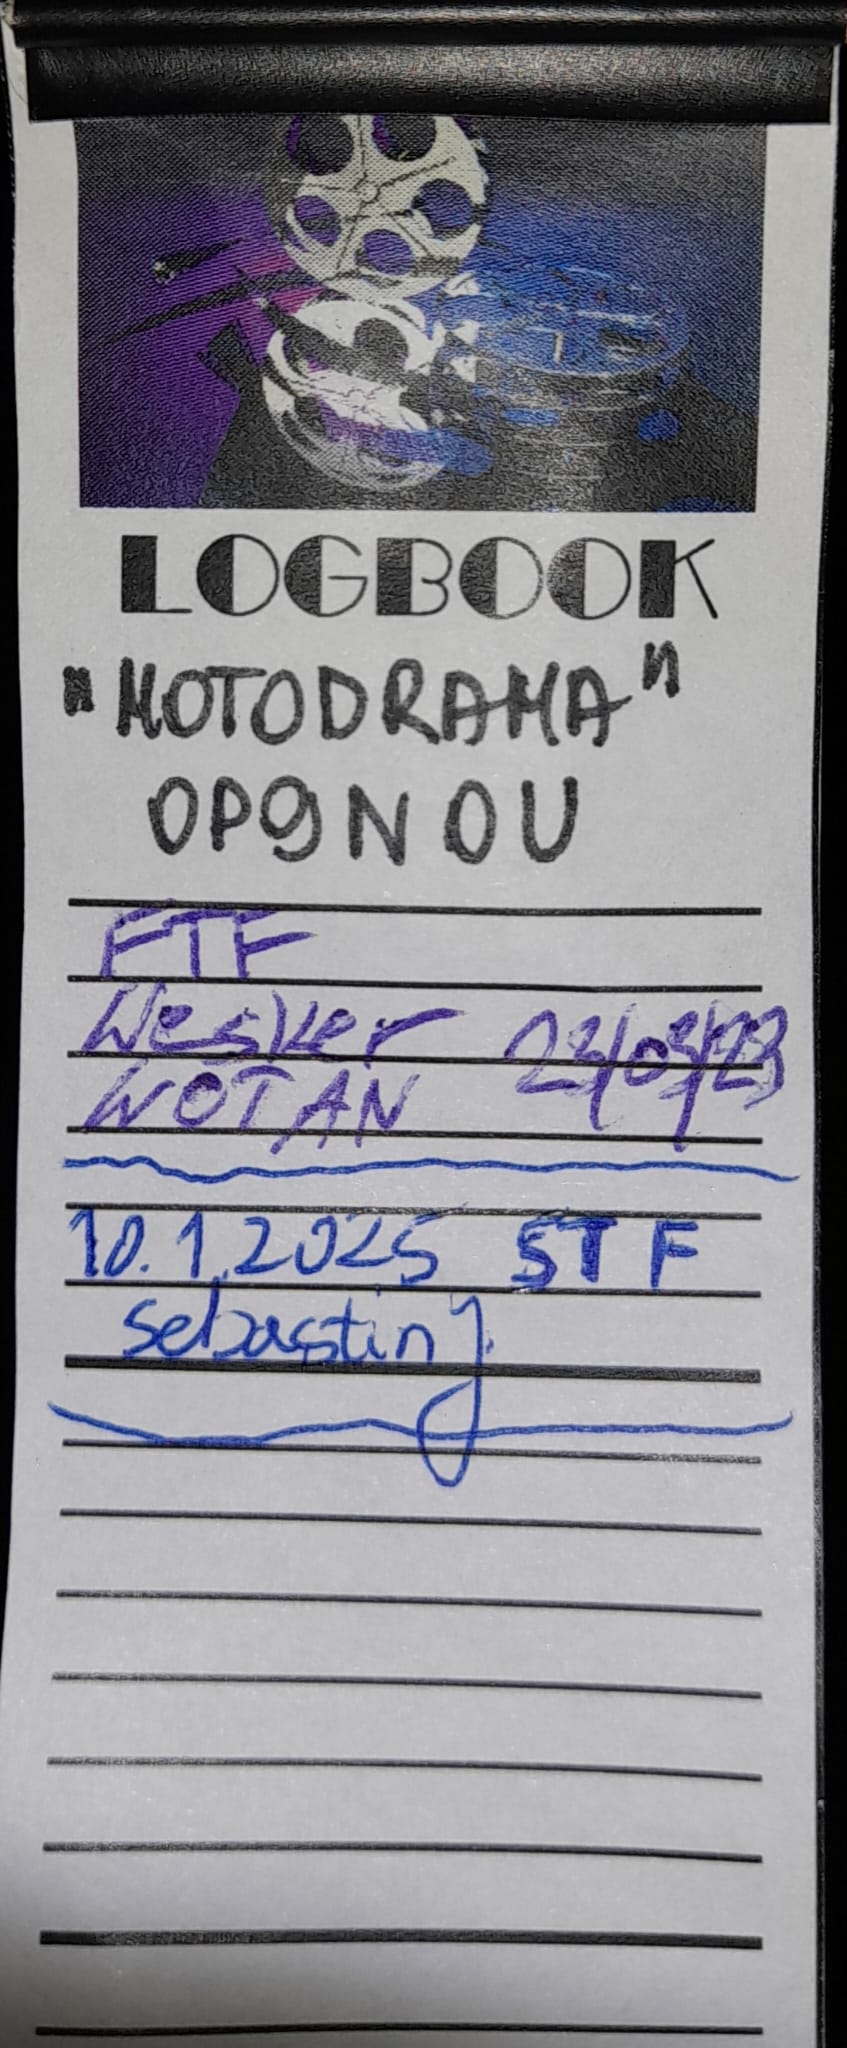 LOGBOOK
"MOTODRAMA"
OP9NOU
FTF
Wesker 23/03/23
WOTAN
10.1.2025 STF
sebastinj.